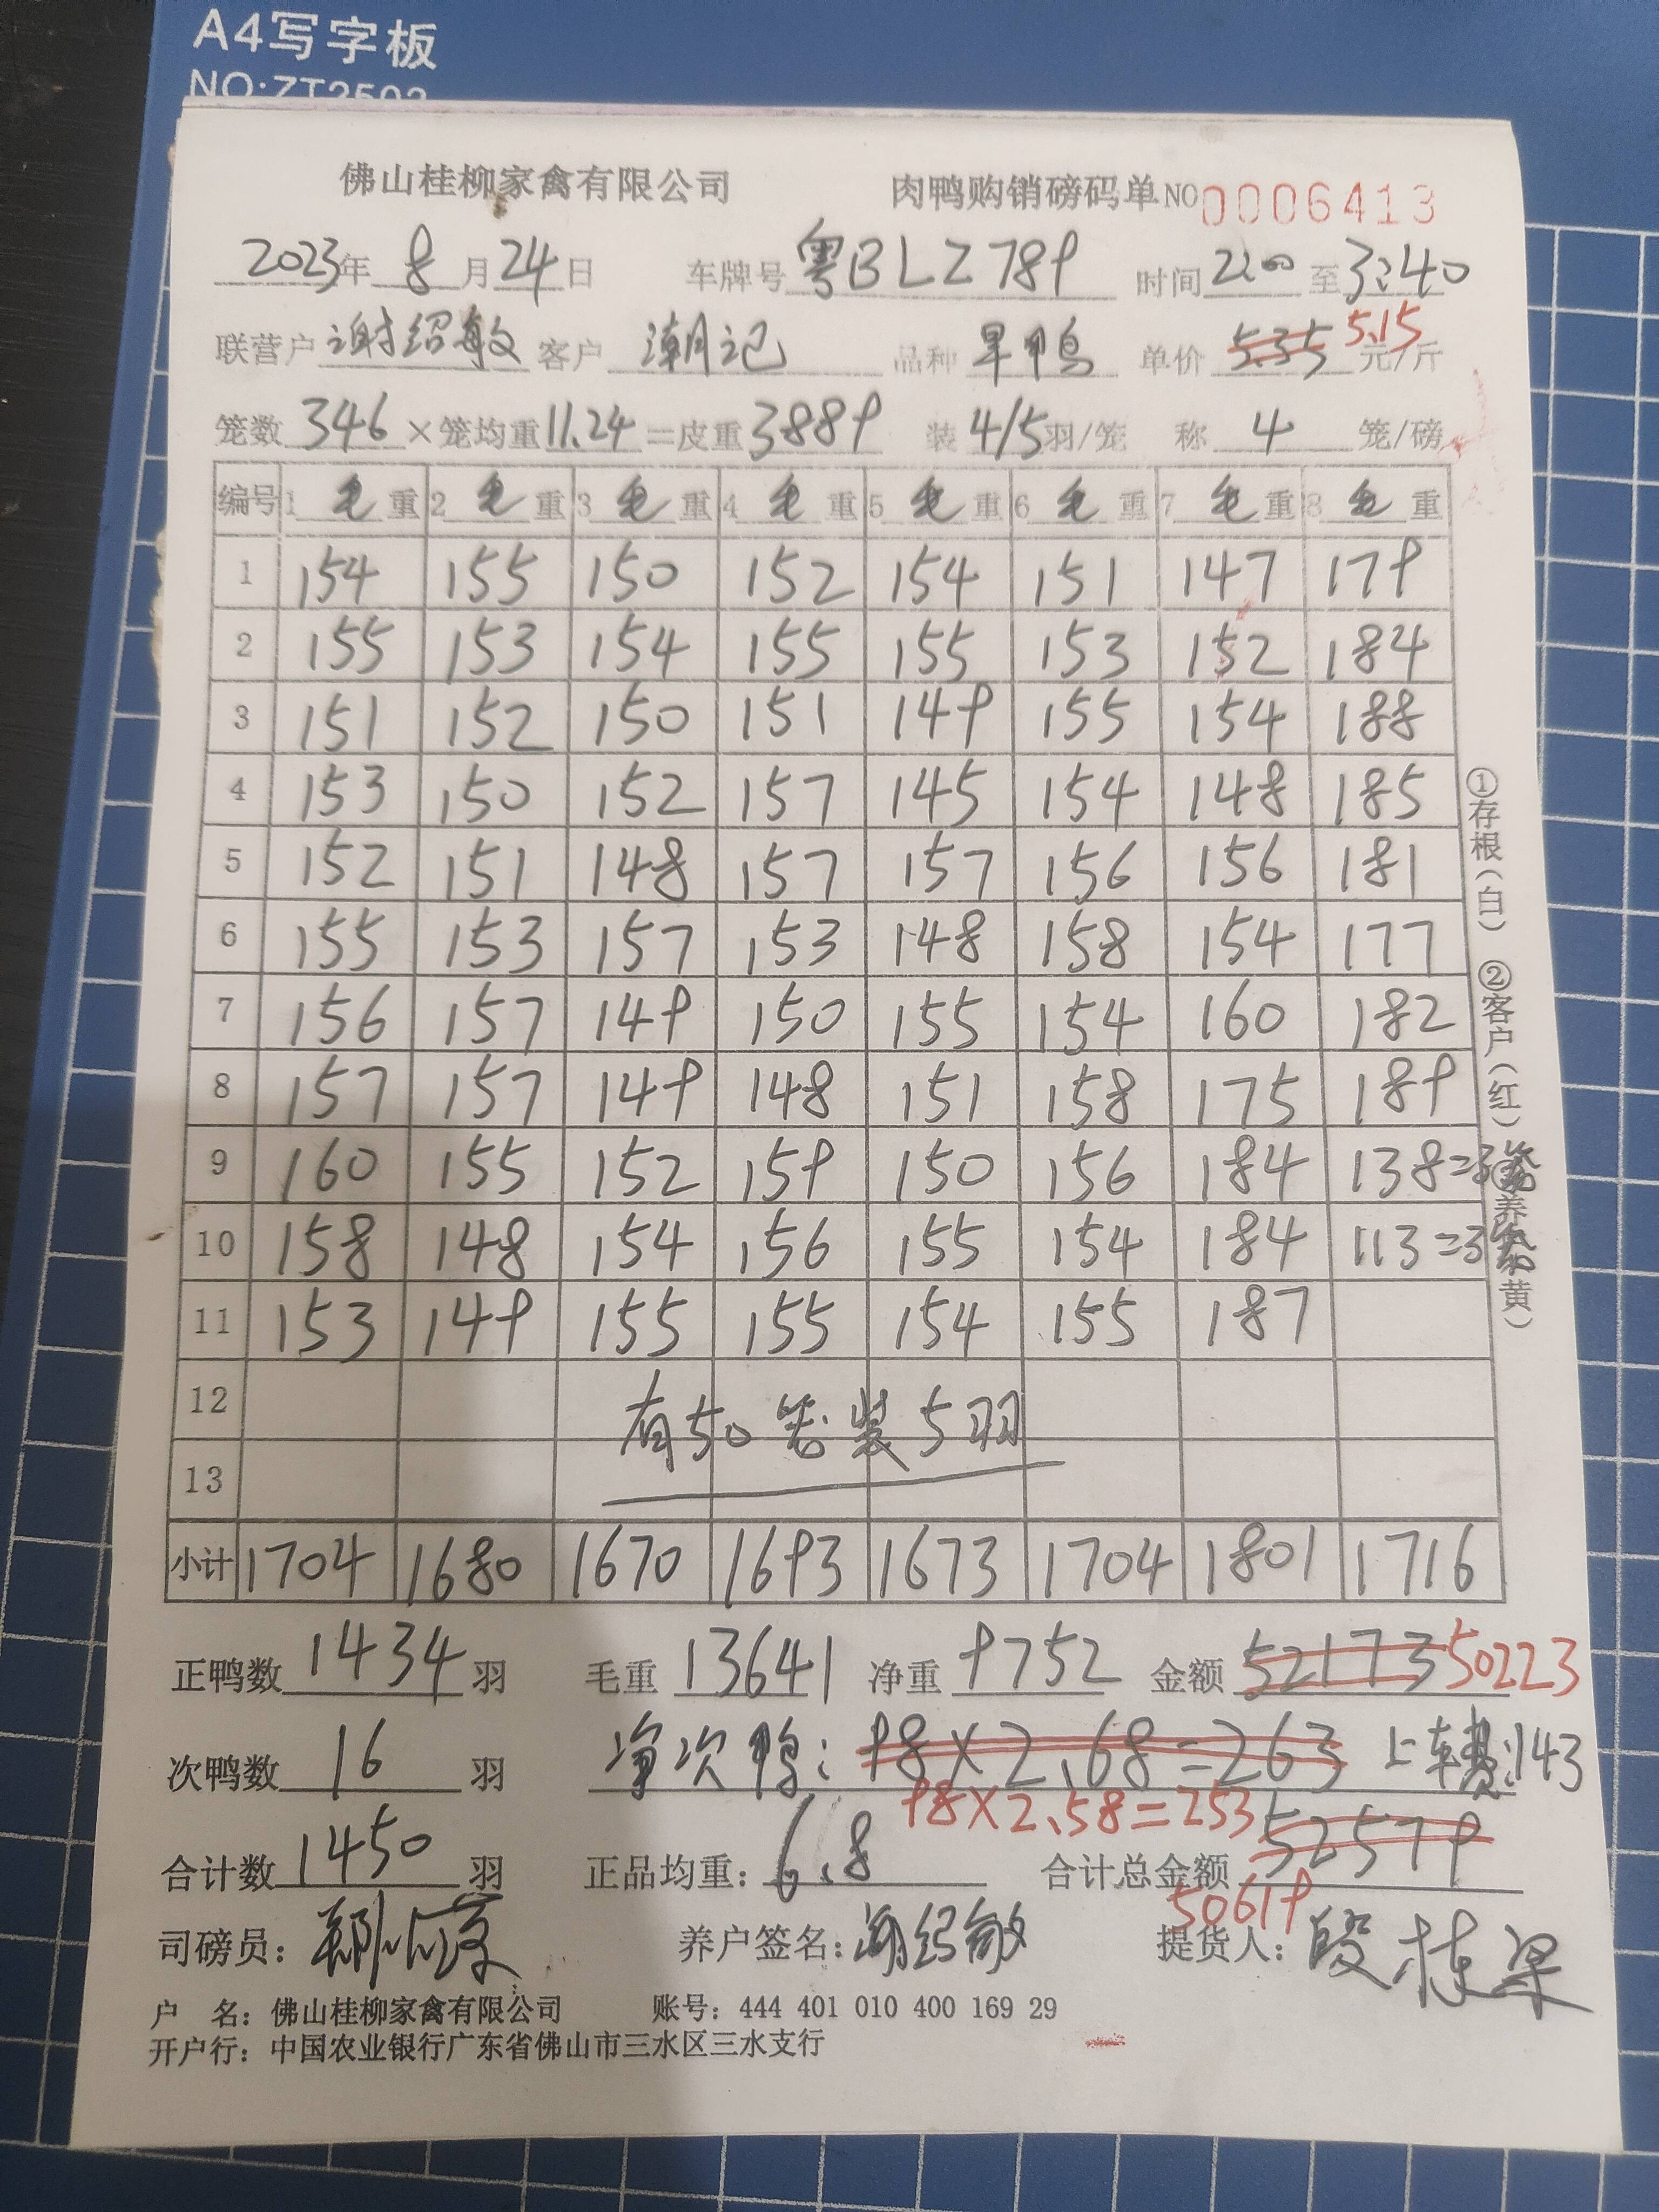 A4写字板
NO:ZT2503
佛山桂柳家禽有限公司 肉鸭购销磅码单NO 0006413
2023年 8月24日 车牌号 粤BLZ789 时间 2:00 至 3:40
联营户 谢绍敏 客户 潮记 品种 旱鸭 单价 5.35 5.15 元/斤
笼数 346 ×笼均重 11.24 =皮重 3889 装 4/5 羽/笼 称 4 笼/磅
编号 1 毛重 2 毛重 3 毛重 4 毛重 5 毛重 6 毛重 7 毛重 8 毛重
1 154 155 150 152 154 151 147 179
2 155 153 154 155 155 153 152 184
3 151 152 150 151 149 155 154 188
4 153 150 152 157 145 154 148 185
5 152 151 148 157 157 156 156 181
6 155 153 157 153 148 158 154 177
7 156 157 149 150 155 154 160 182
8 157 157 149 148 151 158 175 189
9 160 155 152 159 150 156 184 138=3笼
10 158 148 154 156 155 154 184 113=3笼
11 153 149 155 155 154 155 187
12
有50笼装5羽
13
小计 1704 1680 1670 1693 1673 1704 1801 1716
正鸭数 1434 羽 毛重 13641 净重 9752 金额 52173 50223
次鸭数 16 羽 净次鸭: 98×2.68=263 上车费:143
98×2.58=253
合计数 1450 羽 正品均重: 6.8 合计总金额 52579
50619
司磅员: 养户签名: 谢绍敏 提货人: 段栋梁
户 名: 佛山桂柳家禽有限公司 账号: 444 401 010 400 169 29
开户行: 中国农业银行广东省佛山市三水区三水支行
①存根(白) ②客户(红) 养 黄)